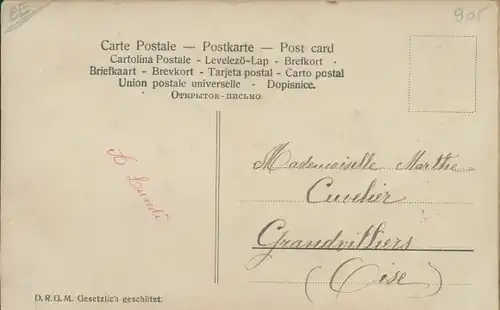 905
Carte Postale — Postkarte — Post card
Cartolina Postale - Levelező-Lap - Brefkort
Briefkaart - Brevkort - Tarjeta postal - Carto postal
Union postale universelle - Dopisnice.
Открытое-письмо
A Lundi
Mademoiselle Marthe
Cuvelier
Grandvilliers
(Oise)
D. R. G. M. Gesetzlich geschützt.